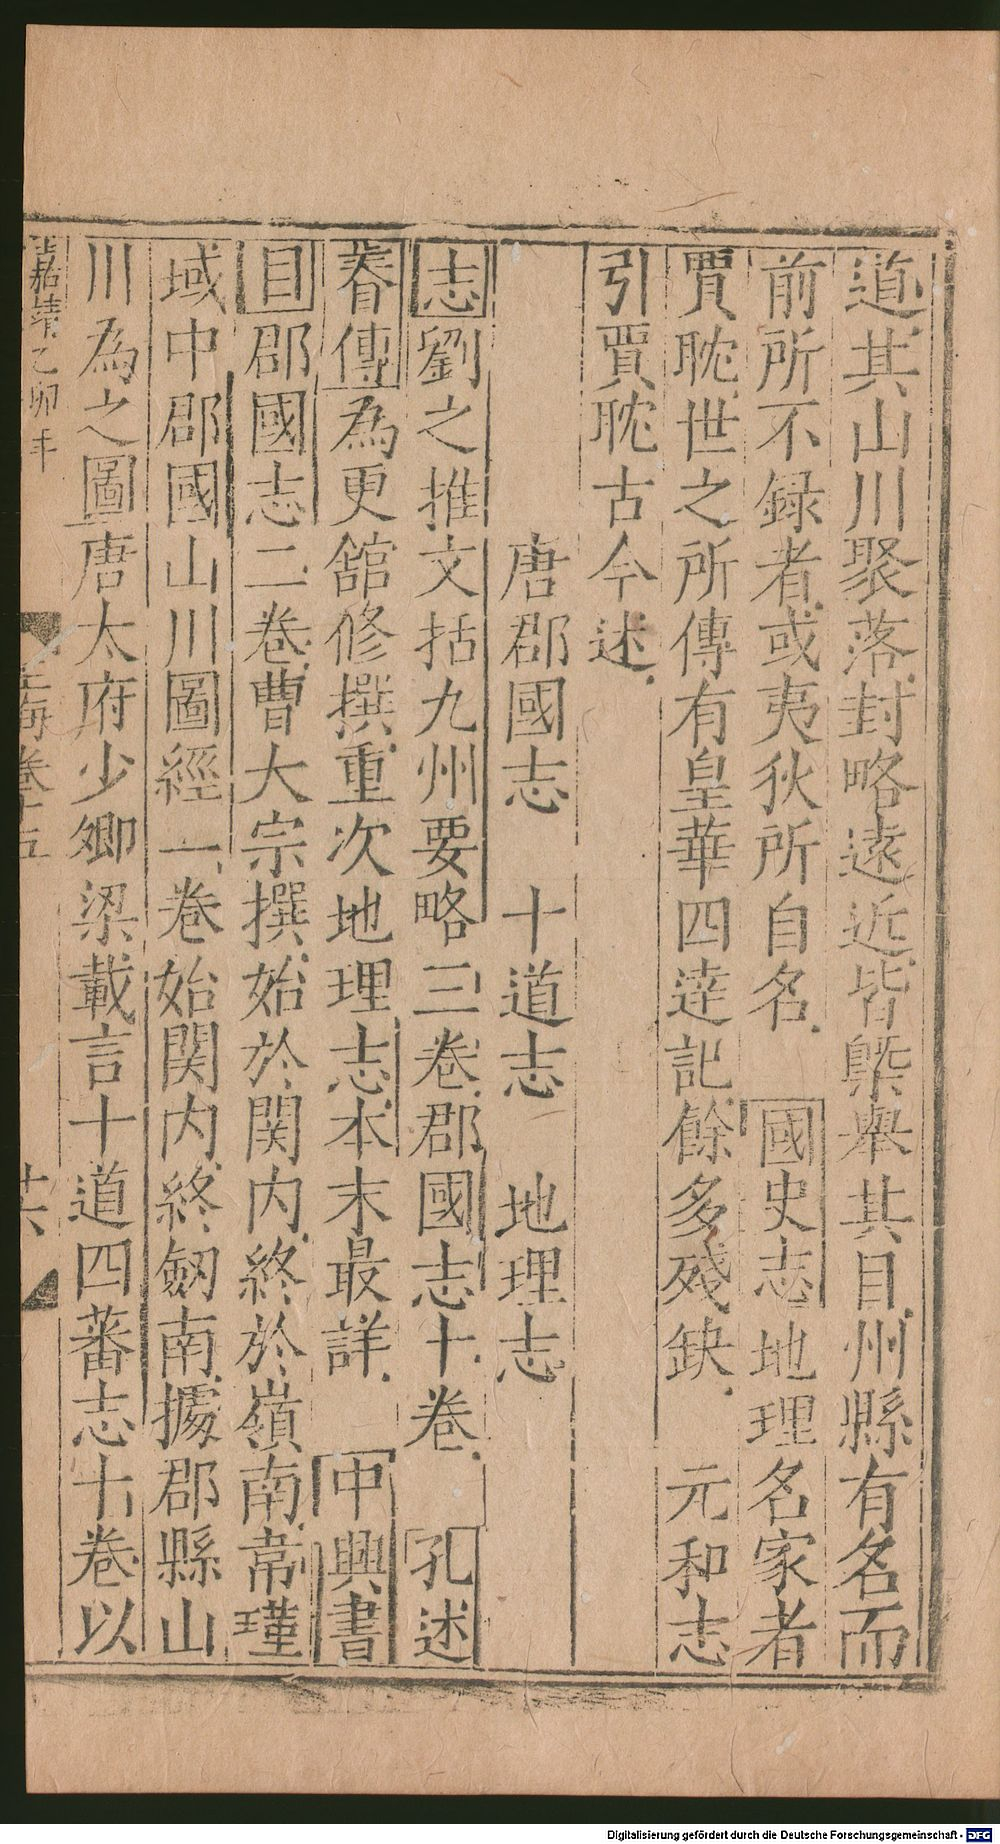 道其山川聚落封略遠近皆槩舉其目州縣有名而
前所不録者或夷狄所自名 國史志地理名家者
賈耽世之所傳有皇華四逹記餘多殘缺 元和志
引賈耽古今述
唐郡國志 十道志 地理志
志劉之推文括九州要略三卷郡國志十卷 孔述
睿傳為更館修撰重次地理志本末最詳 中興書
目郡國志二卷曹大宗撰始於関内終於嶺南韋瑾
域中郡國山川圖經一卷始関内終劒南據郡縣山
川為之圖唐太府少卿梁載言十道四蕃志十卷以
嘉靖乙卯年
玉海卷十五
十六
Digitalisierung gefördert durch die Deutsche Forschungsgemeinschaft - DFG